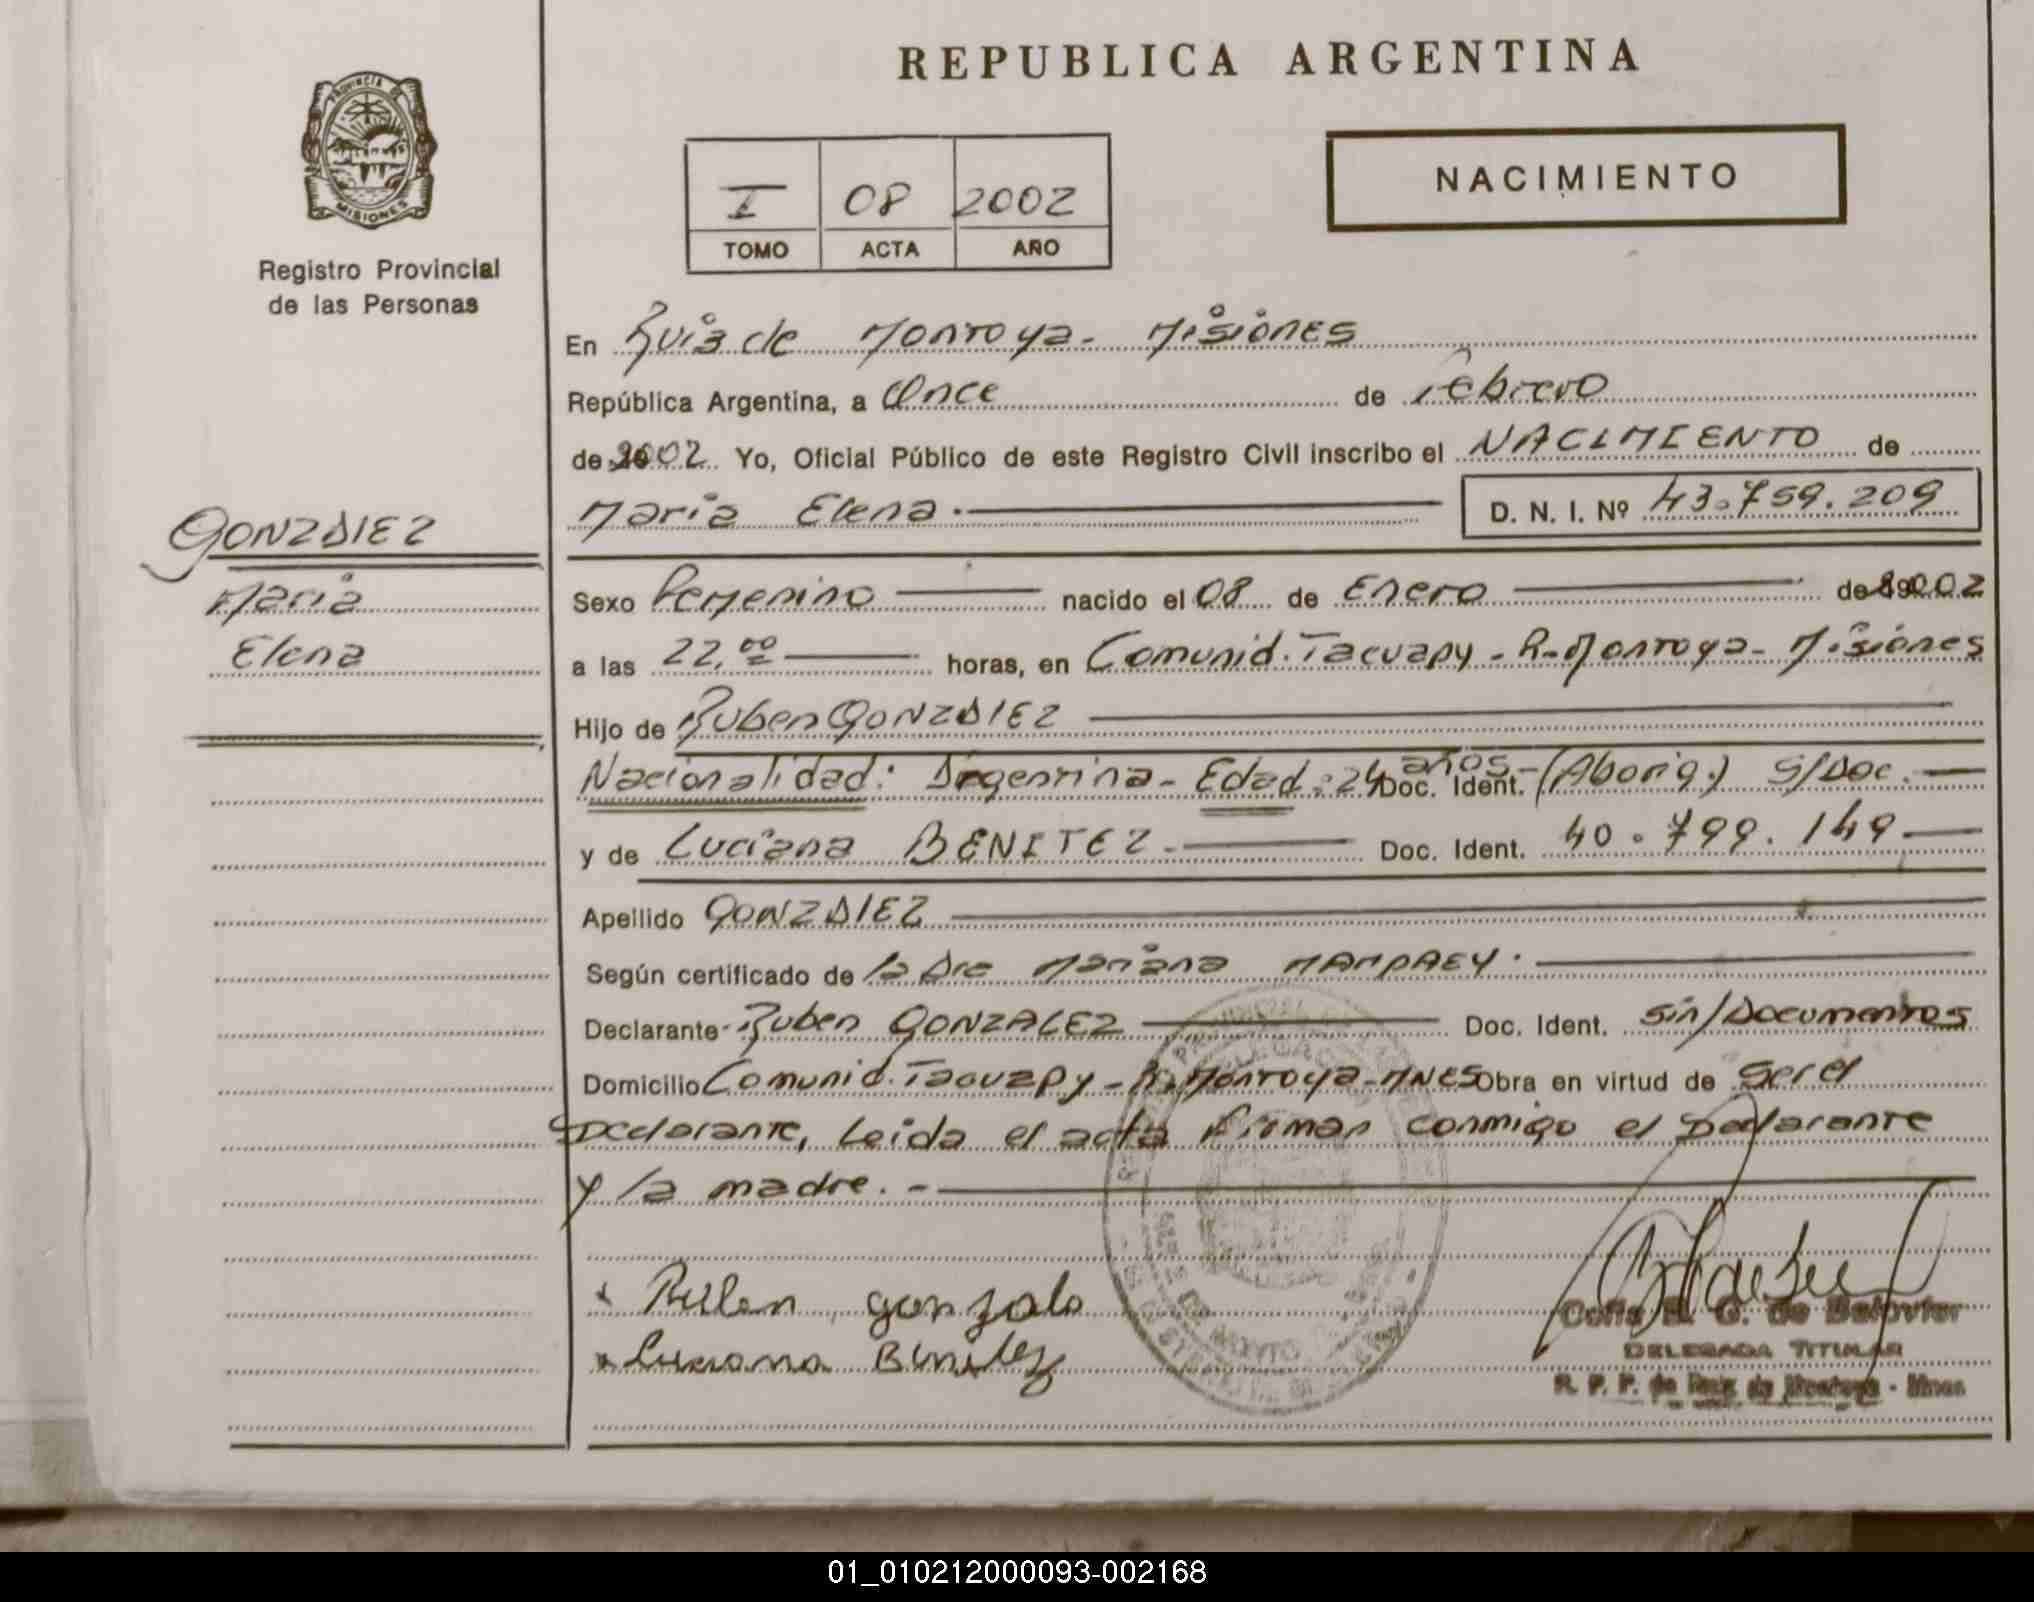 REPUBLICA ARGENTINA
PROVINCIA DE
MISIONES
Registro Provincial
de las Personas
I 08 2002
TOMO ACTA AÑO
NACIMIENTO
En Ruiz de Montoya - Misiones
República Argentina, a Once de Febrero
de 2002 Yo, Oficial Público de este Registro Civil inscribo el NACIMIENTO de
Maria Elena.- D. N. I. Nº 43.759.209
GONZALEZ
Maria
Elena
Sexo Femenino nacido el 08 de Enero de 2002
a las 22,00 horas, en Comunid. Tacuapy - R. Montoya - Misiones
Hijo de Ruben GONZALEZ
Nacionalidad: Argentina - Edad: 24 años - Doc. Ident. (Aborig.) S/Doc.
y de Luciana BENITEZ.- Doc. Ident. 40.799.149
Apellido GONZALEZ
Según certificado de la Dra Mariana
Declarante Ruben GONZALEZ Doc. Ident. Sin/Documentos
Domicilio Comunid. Tacuapy - R. Montoya - MNES Obra en virtud de Ser el
Declarante, Leida el acta firman conmigo el Declarante
y la madre.-
x Ruben gonzale
x Luciana Benitez
DELEGADA TITULAR
R. P. P. de Ruiz de Montoya - Mnes
01_010212000093-002168